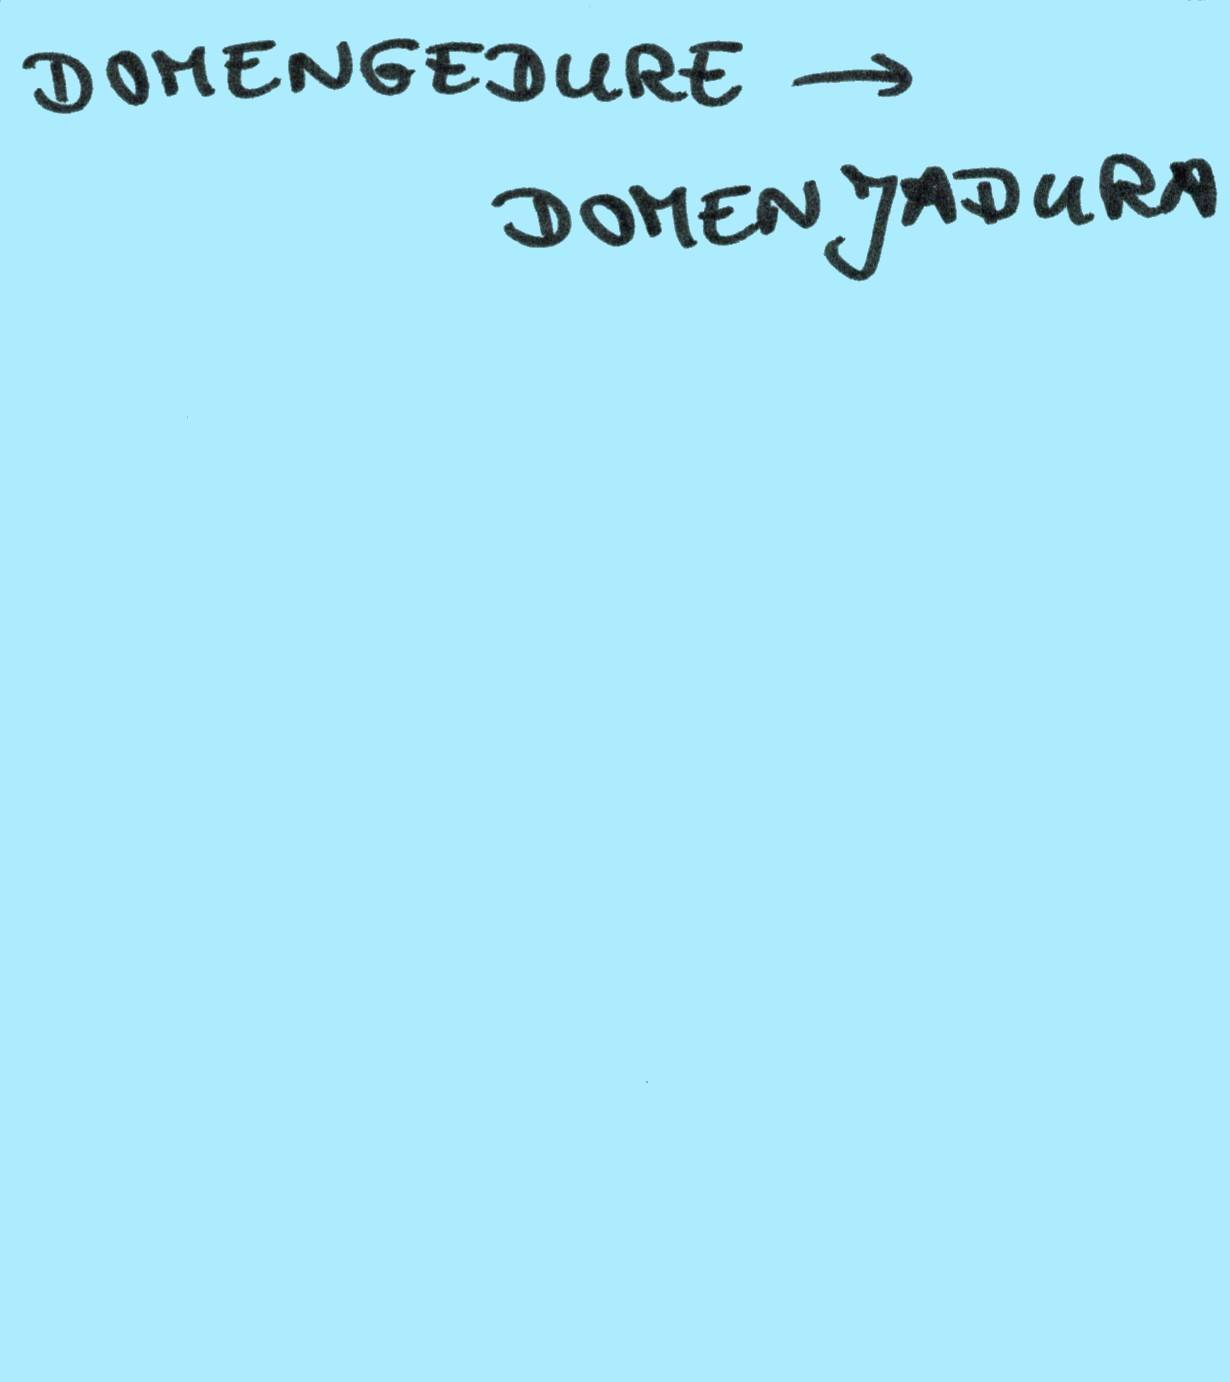 DOMENGEDURE →
DOMENJADURA